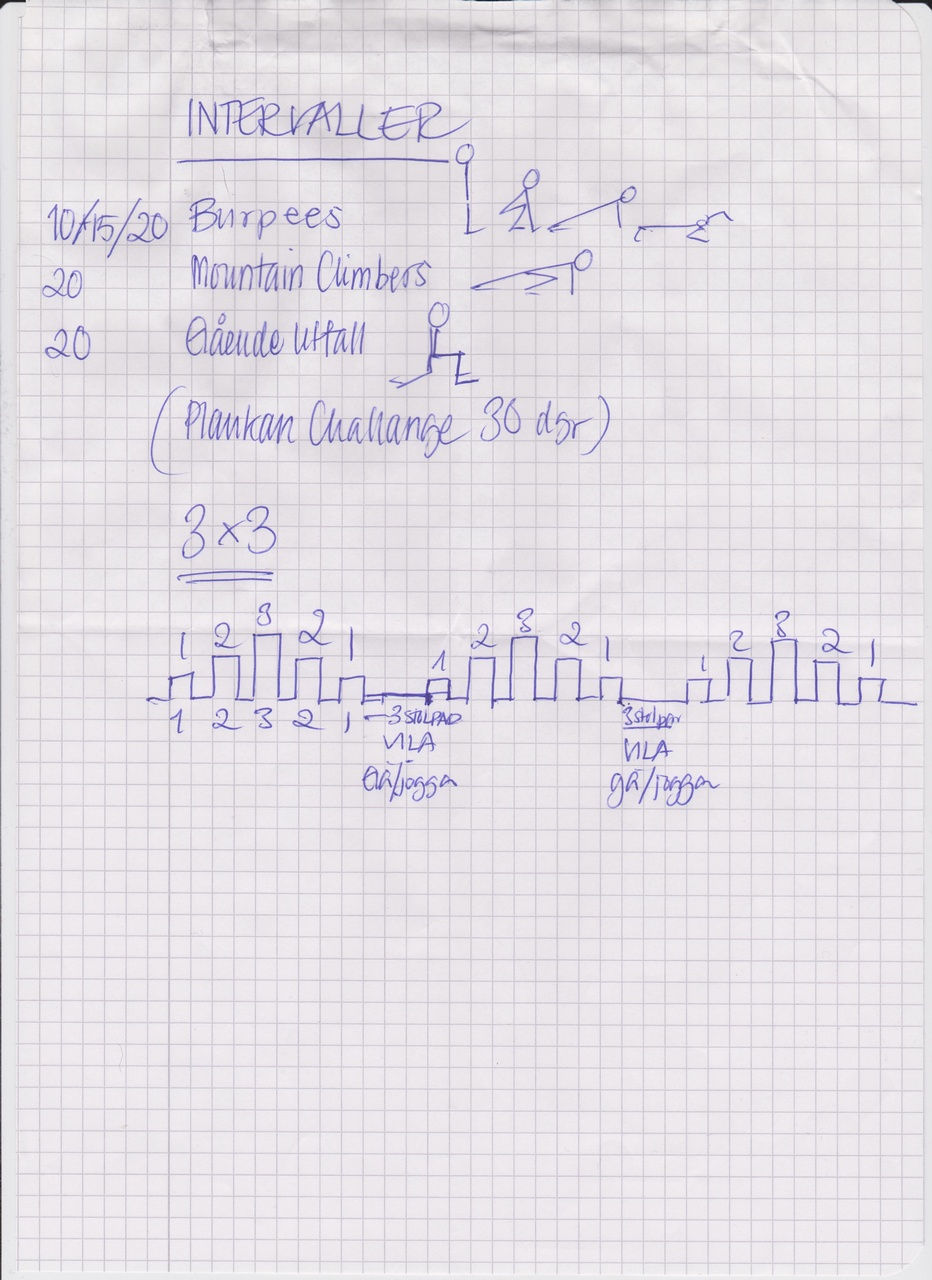 INTERVALLER
10/15/20 Burpees
20 Mountain Climbers
20 Gående Utfall
(Plankan Challange 30 dgr)
3x3
1 2 3 2 1 1 2 3 2 1 1 2 3 2 1
1 2 3 2 1 3 STOLPAR 3 stolpar
VILA VILA
Gå/jogga gå/jogga